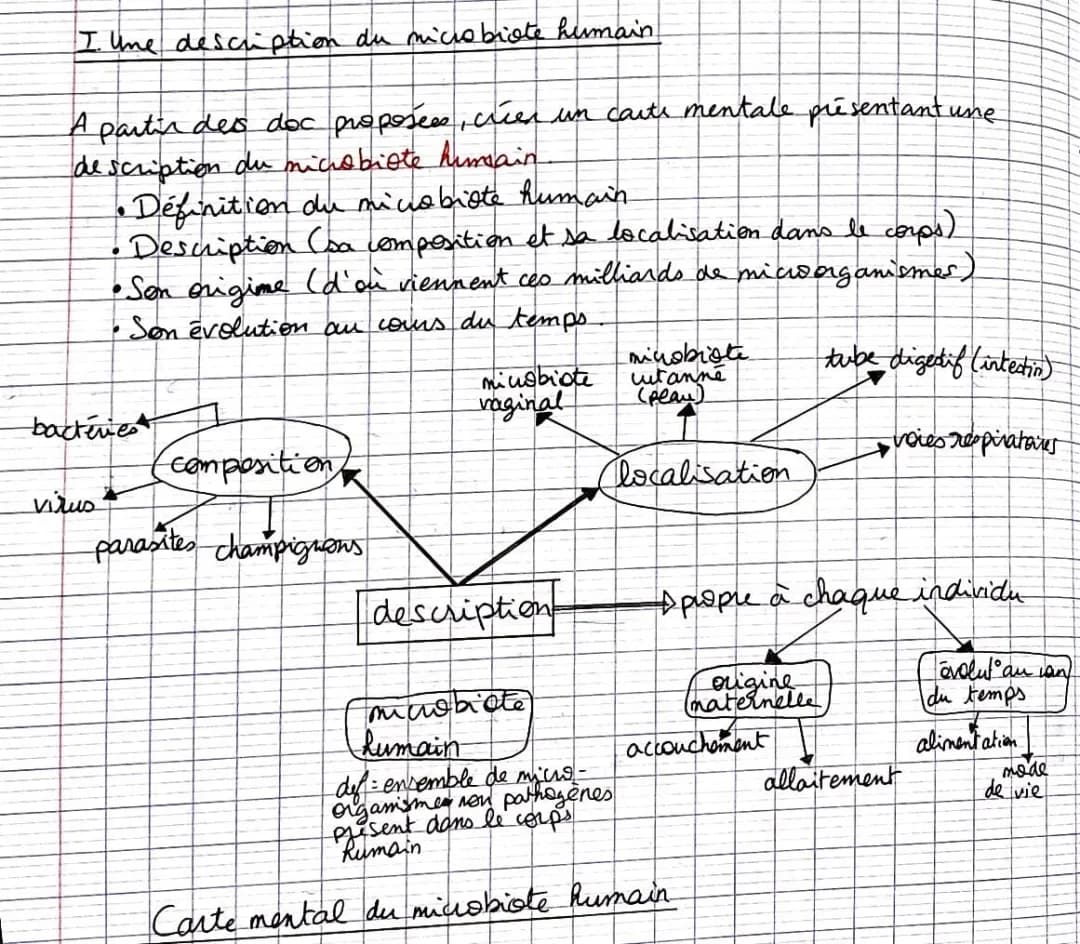 I. Une description du microbiote humain
A partir des doc proposées, créer un carte mentale présentant une
description du microbiote humain.
• Définition du microbiote humain
• Description (sa composition et sa localisation dans le corps)
• Son origine (d'où viennent ces milliards de microorganismes)
• Son évolution au cours du temps.
microbiote
vaginal
microbiote
cutanné
(peau)
tube digestif (intestin)
voies respiratoires
bactéries
composition
localisation
virus
parasites
champignons
description
propre à chaque individu
origine
maternelle
évolut° au cours
du temps
accouchement
allaitement
alimentation
mode
de vie
microbiote
humain
def = ensemble de micro-
organismes non pathogènes
présent dans le corps
humain
Carte mental du microbiote humain